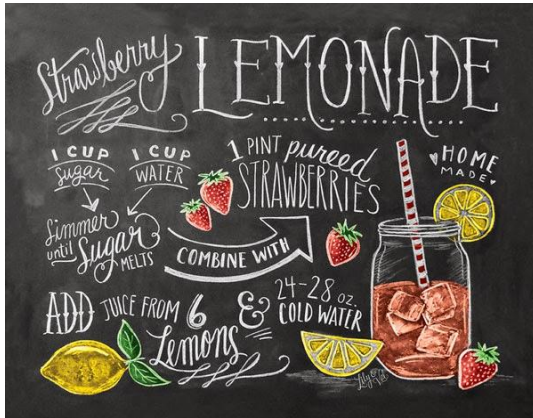 Strawberry LEMONADE
1 CUP sugar
1 CUP WATER
Simmer until Sugar MELTS
COMBINE WITH
1 PINT pureed STRAWBERRIES
HOME MADE
ADD JUICE FROM 6 Lemons
& 24-28 oz. COLD WATER
Lily & Val